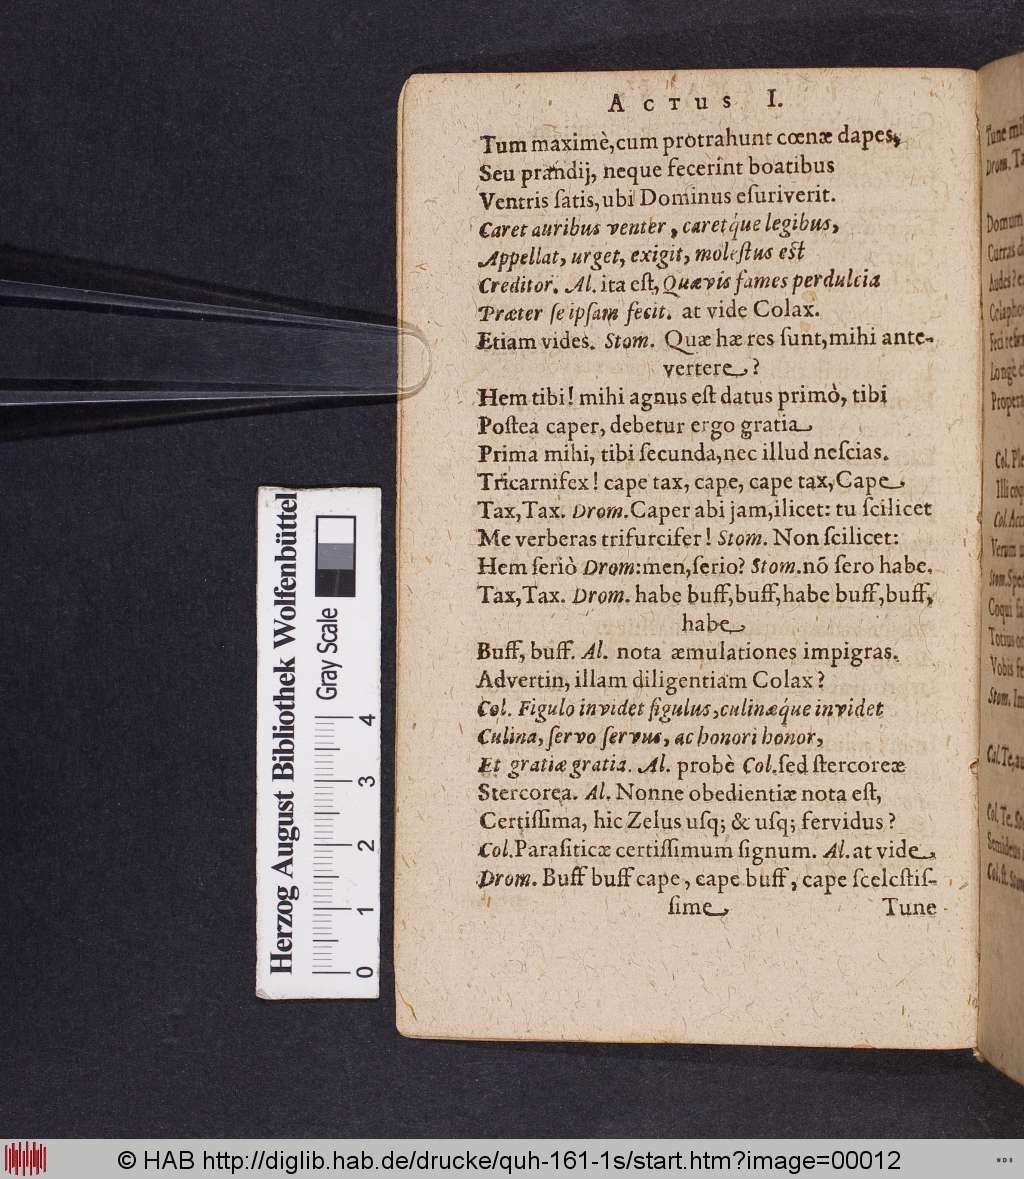 ACTUS I.
Tum maximè, cum protrahunt cœnæ dapes,
Seu prandij, neque fecerint boatibus
Ventris ſatis, ubi Dominus eſuriverit.
Caret auribus venter, caretq́ue legibus,
Appellat, urget, exigit, moleſtus eſt
Creditor. Al. ita eſt, Quævis fames perdulcia
Præter ſe ipſam fecit. at vide Colax.
Etiam vides. Stom. Quæ hæ res ſunt, mihi ante-
vertere?
Hem tibi! mihi agnus eſt datus primò, tibi
Poſtea caper, debetur ergo gratia
Prima mihi, tibi ſecunda, nec illud neſcias.
Tricarnifex! cape tax, cape, cape tax, Cape
Tax, Tax. Drom. Caper abi jam, ilicet: tu ſcilicet
Me verberas trifurcifer! Stom. Non ſcilicet:
Hem ſeriò Drom: men, ſerio? Stom. nō ſero habe.
Tax, Tax. Drom. habe buff, buff, habe buff, buff,
habe
Buff, buff. Al. nota æmulationes impigras.
Advertin, illam diligentiam Colax?
Col. Figulo invidet figulus, culinæq́ue invidet
Culina, ſervo ſervus, ac honori honor,
Et gratiæ gratia. Al. probè Col. ſed ſtercoreæ
Stercorea. Al. Nonne obedientiæ nota eſt,
Certiſſima, hic Zelus uſq; & uſq; fervidus?
Col. Paraſiticæ certiſſimum ſignum. Al. at vide.
Drom. Buff buff cape, cape buff, cape ſceleſtiſ-
ſime
Tune
Herzog August Bibliothek Wolfenbüttel
Gray Scale
0 1 2 3 4
© HAB http://diglib.hab.de/drucke/quh-161-1s/start.htm?image=00012